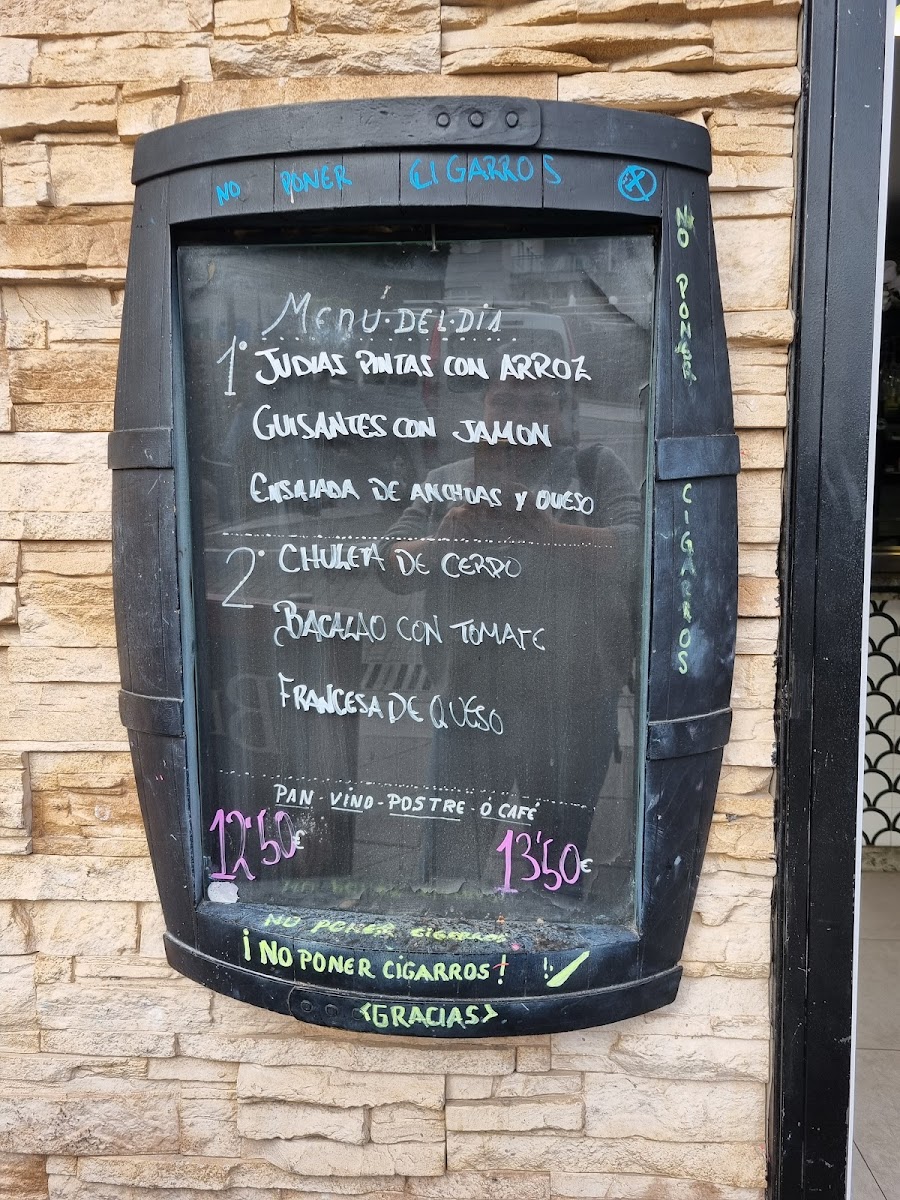 NO PONER CIGARROS
NO PONER CIGARROS
MENÚ·DEL·DÍA
1° JUDIAS PINTAS CON ARROZ
GUISANTES CON JAMON
ENSALADA DE ANCHOAS Y QUESO
2° CHULETA DE CERDO
BACALAO CON TOMATE
FRANCESA DE QUESO
PAN - VINO - POSTRE - Ó CAFÉ
12'50€ 13'50€
NO PONER CIGARROS
¡NO PONER CIGARROS!
<GRACIAS>